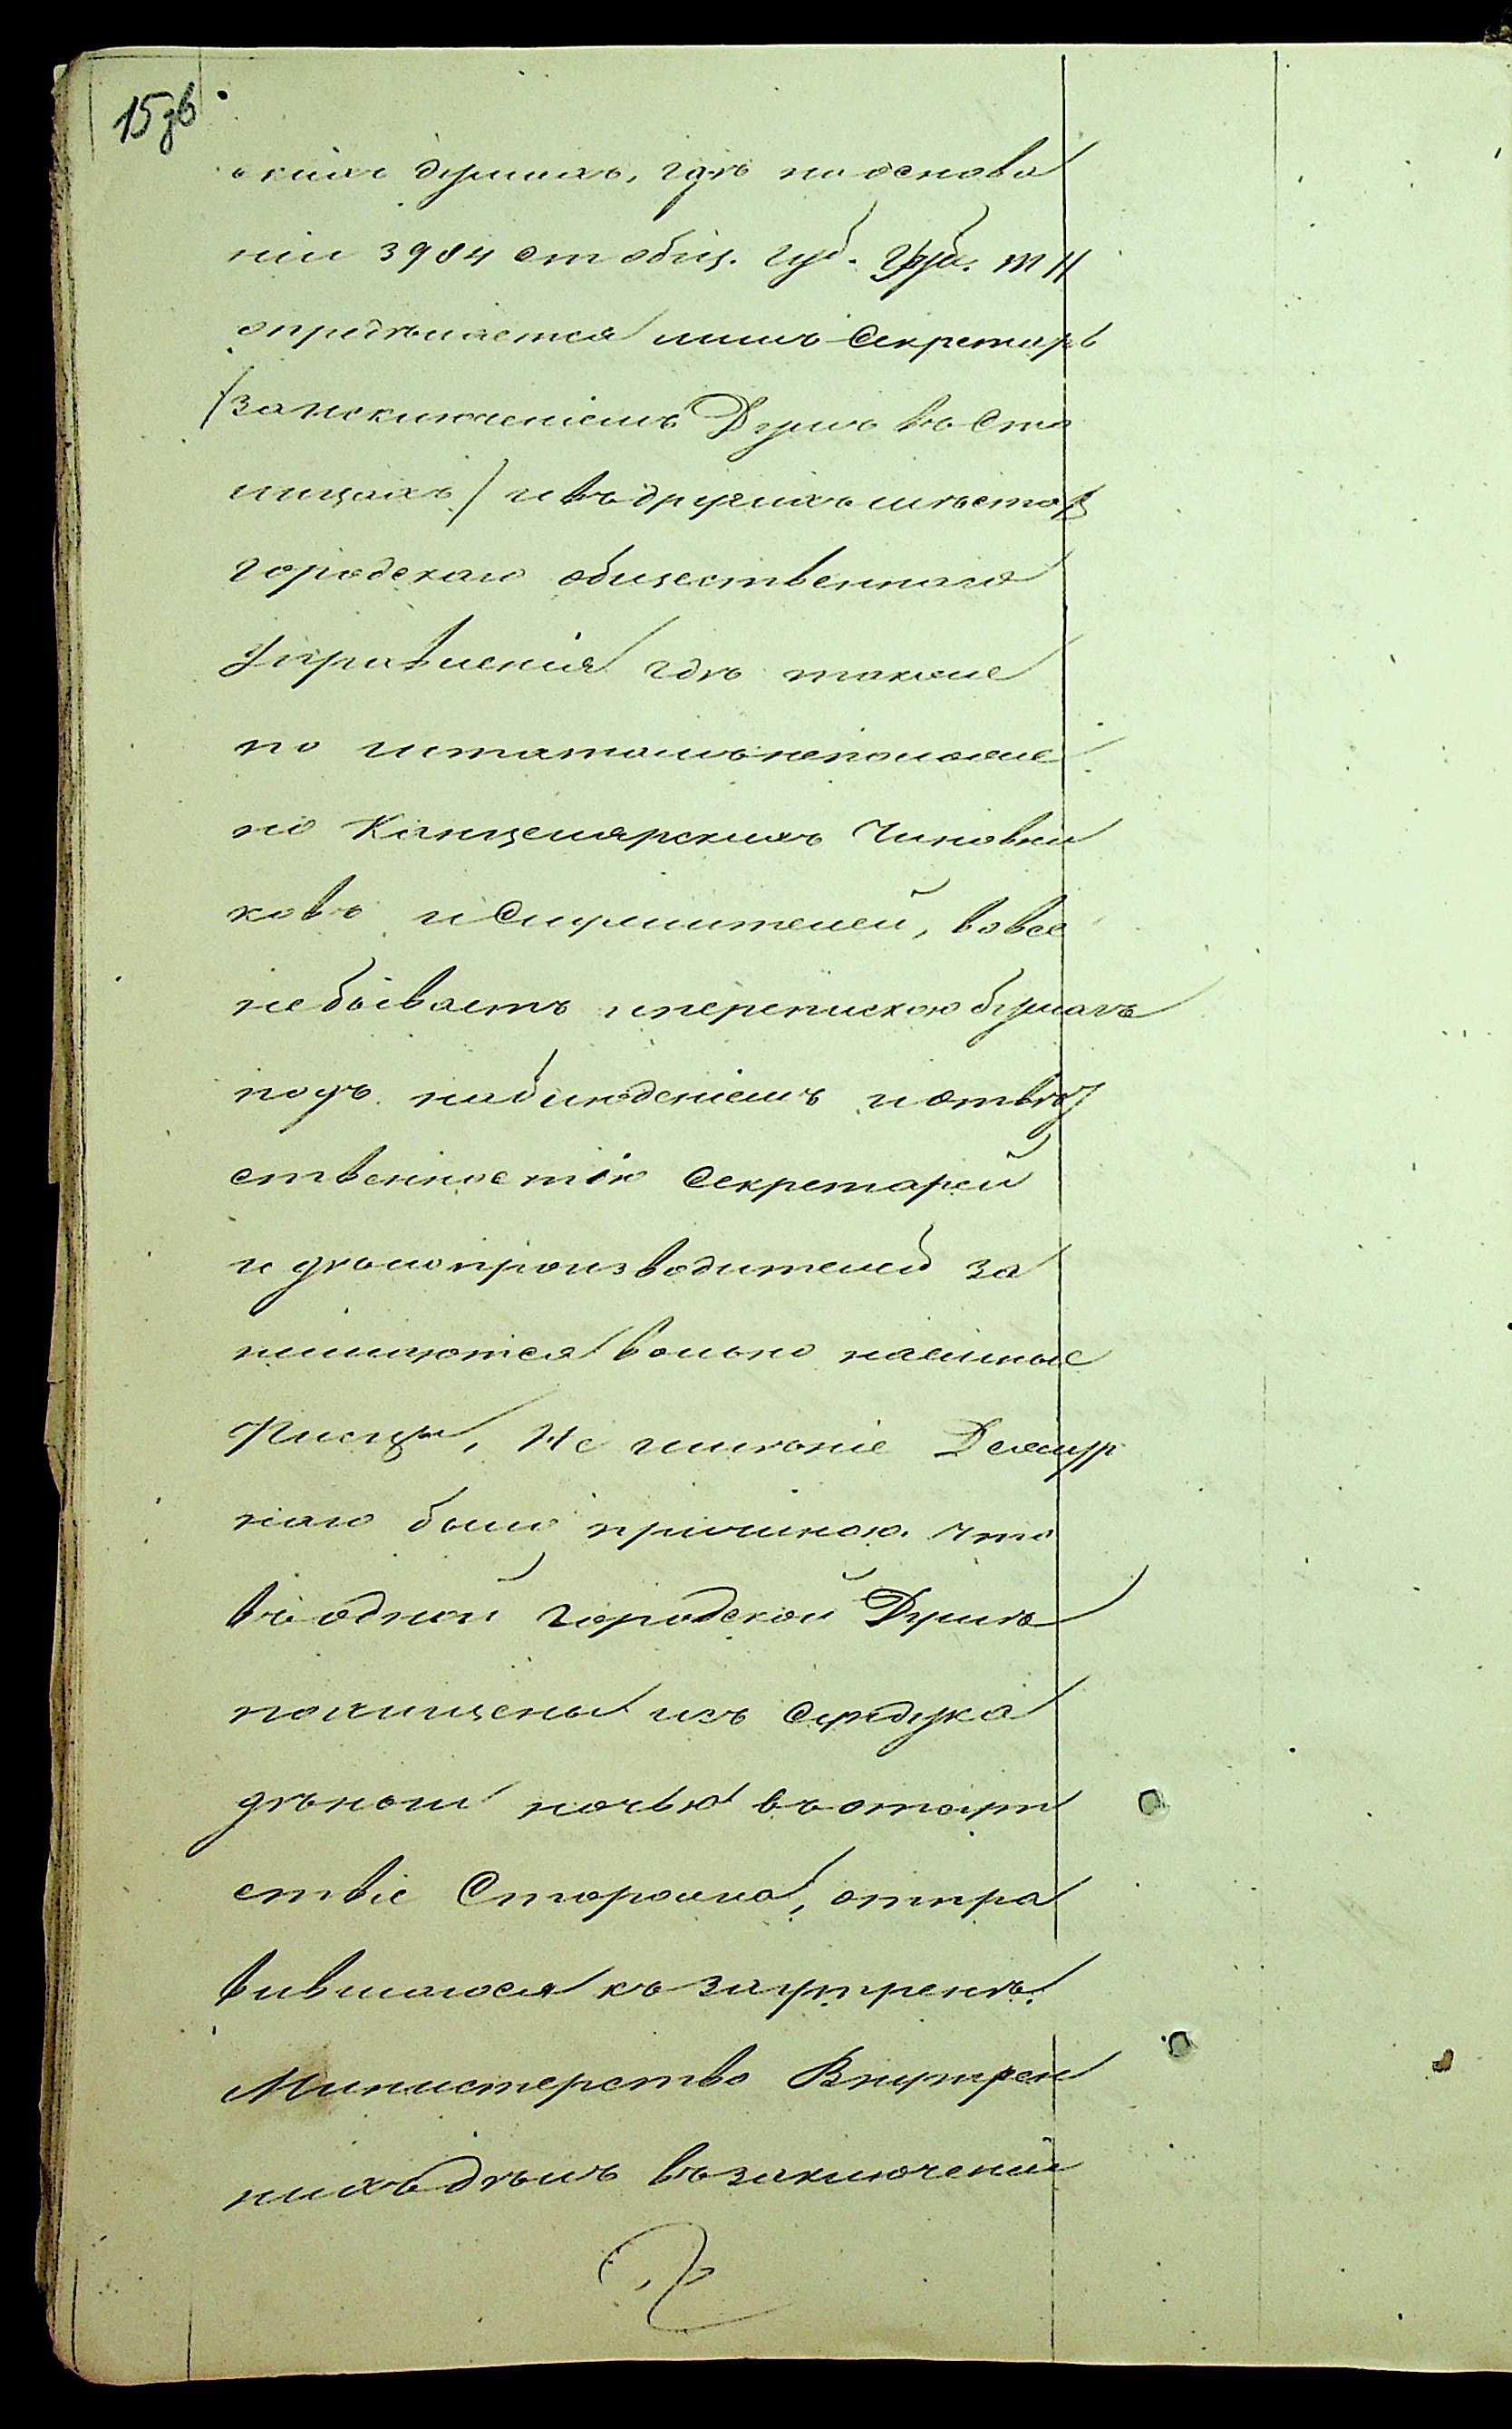 15 зв
скихъ думахъ, гдѣ на основа
ніи 3984 ст общ. губ. Учр. т II
опредѣляется лишь Секретарь
(за исключеніемъ Думъ въ Сто
лицахъ) и въ другихъ мѣстах
городскаго общественнаго
Управленія гдѣ также
по штатамъ неположе
но Канцелярскихъ Чиновни
ковъ и Служителей, вовсе
не бываетъ, и перепискою бумагъ
подъ наблюденіемъ и отвѣт
ственностію Секретарей
и дѣлопроизводителей за
нимаются вольно наемные
Писцы, Не имѣніе Дежур
наго было причиною что
въ одной Городской Думѣ
похищены изъ Сундука
деньги ночью въ отсут
ствіе Сторожа, отпра
вившагося къ заутренѣ.
Министерство Внутрен
нихъ дѣлъ въ заключеніи